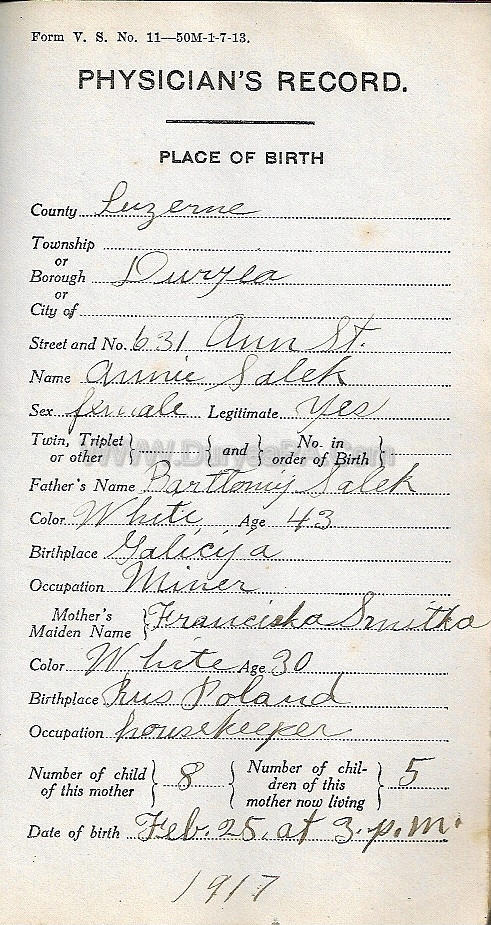 Form V. S. No. 11—50M-1-7-13.
PHYSICIAN'S RECORD.
PLACE OF BIRTH
County Luzerne
Township
or
Borough Duryea
or
City of
Street and No. 631 Ann St.
Name Annie Salek
Sex female Legitimate Yes
Twin, Triplet or other } { and } { No. in order of Birth }
www.DuryeaPA.com
Father's Name Bartlomiy Salek
Color White Age 43
Birthplace Galicija
Occupation Miner
Mother's Maiden Name } Franciska Smitka
Color White Age 30
Birthplace Rus Poland
Occupation housekeeper
Number of child of this mother } 8 { Number of chil-dren of this mother now living } 5
Date of birth Feb. 25. at 3. p.m.
1917